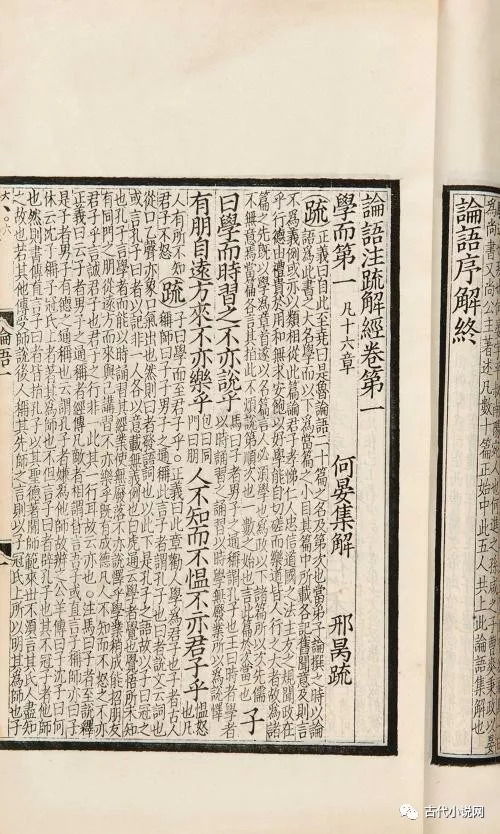 為尚書又尚公主著述凡數十篇正始中此五人共上此論語集解也
論語序解終
論語注疏解經卷第一
學而第一 凡十六章 何晏集解 邢昺疏
疏 正義曰自此至堯曰是魯論語二十篇之名及第次也當弟子論撰之時以論
語為此書之大名學而以下為當篇之小目其篇中所載各記舊聞意及則言
不為義例或亦以類相從此篇論君子孝悌仁人忠信道國之法主友之規聞政在
乎行德由禮貴於用和無求安飽以好學能自切磋而樂道皆人行之大者故為諸
篇之先既以學為章首遂以名篇言人必須學也為政以下諸篇所以次先儒
不無意焉當篇各言其指此不煩說第順次也一數之始也言此篇於次當一也 子
曰學而時習之不亦說乎 馬曰子者男子之通稱謂孔子也王曰時者學者以時誦習之誦習以時學無廢業所以為說懌
有朋自遠方來不亦樂乎 包曰同門曰朋 人不知而不慍不亦君子乎 慍怒也凡
人有所不知君子不怒 疏 子曰學而至君子乎。正義曰此章勸人學為君子也子者古人稱師曰子子男子之通稱此言子者謂孔子也曰者說文云詞也
從口乙聲亦象口氣出也然則曰者發語詞也以此下是孔子之語故以子曰冠之
或言孔子曰者以記非一人各以意載無義例也白虎通云學者覺也覺悟所未知
也孔子言學者而能以時誦習其經業使無廢落不亦說懌乎學業稍成能招朋友
有同門之朋從遠方而來與己講習不亦樂乎既有成德凡人不知而不怒之不亦
君子乎言誠君子也君子之行非一此其一行耳故云亦也。注馬曰子者至說懌
正義曰云子者男子之通稱者經傳凡敵者相謂皆言吾子或直言子稱師亦曰子
是子者男子有德之通稱也云謂孔子者嫌為他師故辨之公羊傳曰子沈子曰何
休云沈子稱子冠氏上者著其為師也不但言子曰者辟孔子也其不冠子者他師
也然則書傳直言子曰者皆指孔子以其聖德著聞師範來世不須言其氏人盡知
之故也若其他傳受師說後人稱其先師之言則以子冠氏上所以明其為師也子
論語一
古代小说网